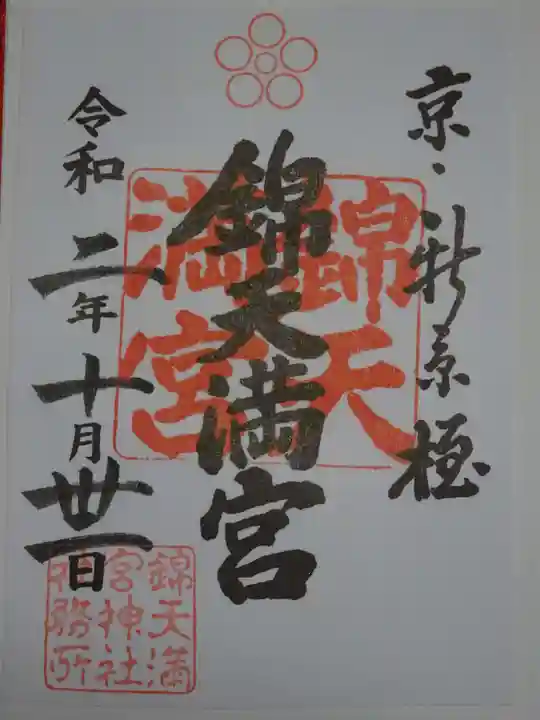 京・新京極
錦天満宮
錦天
満宮
令和二年十月卅一日
錦天満
宮神社
社務所